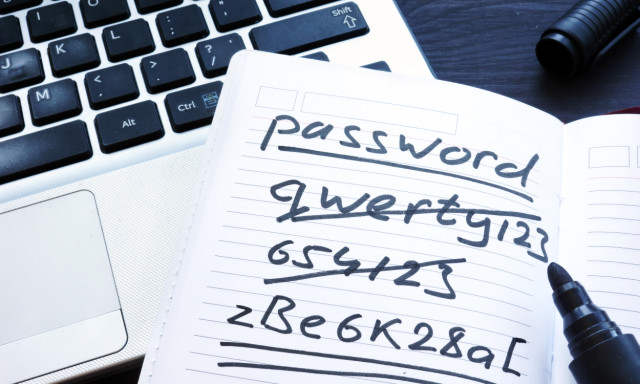 Shift
J K L : ;
M < , > . ? /
Alt Ctrl
password
qwerty123
654123
zBe6K28a[